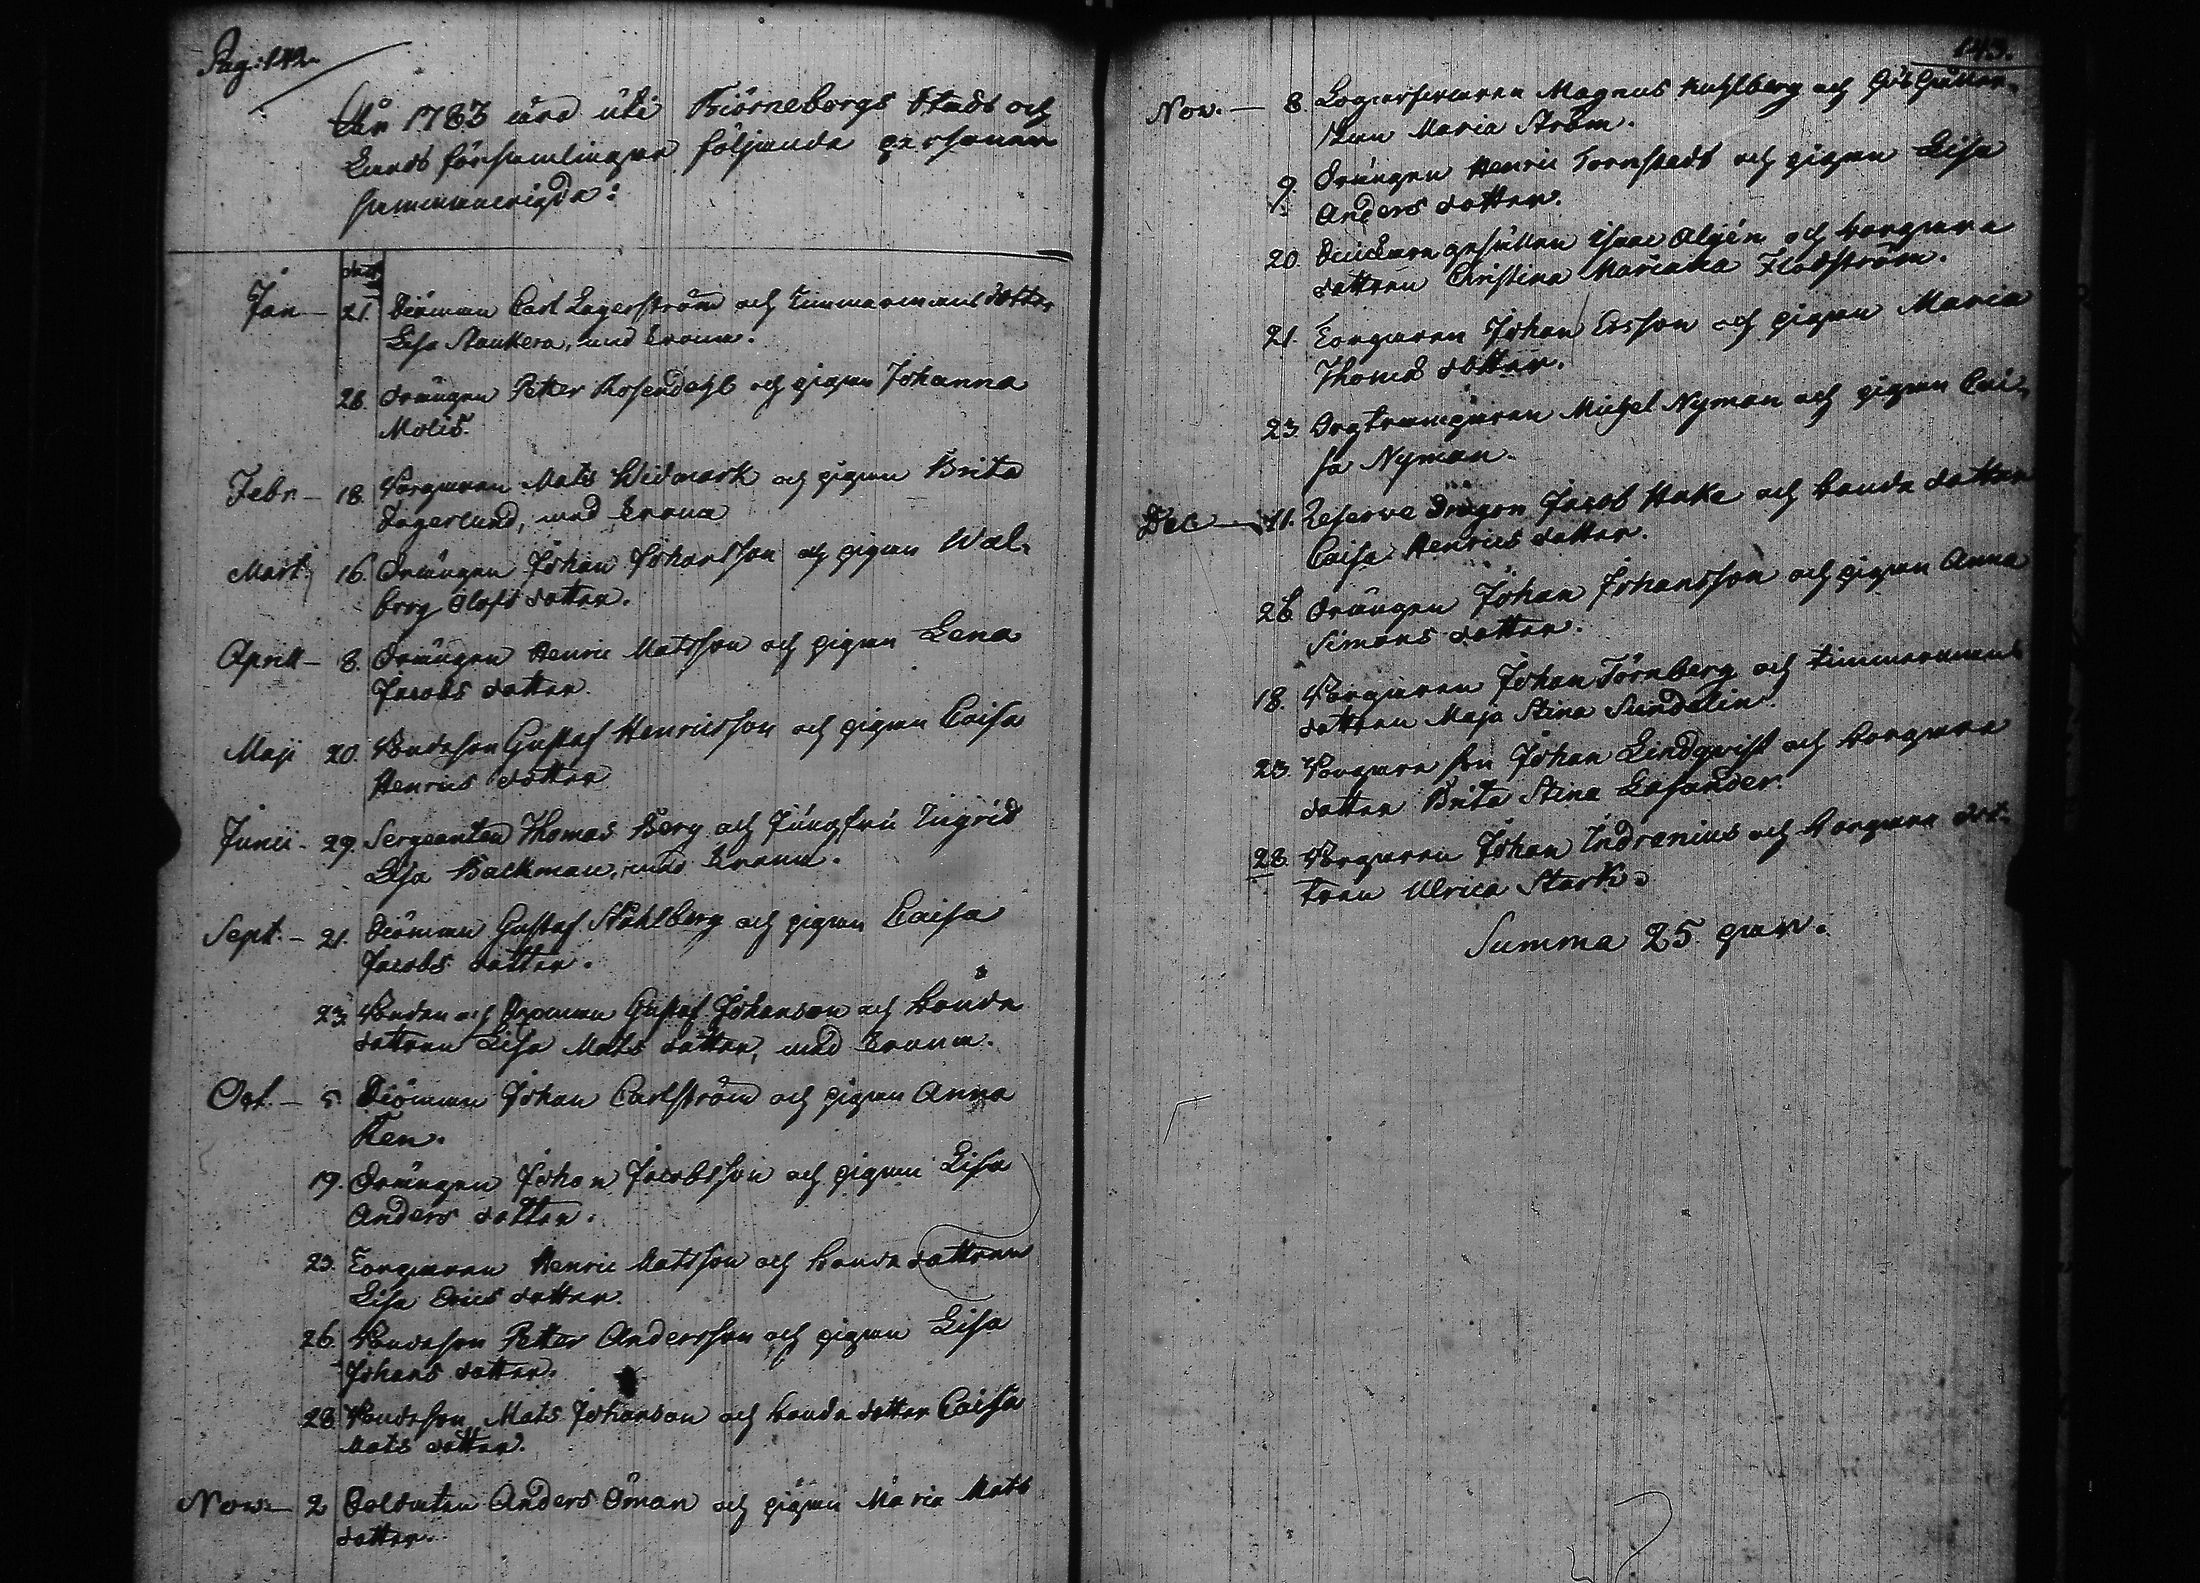 Pag: 142.
År 1783 äro uti Biörneborgs Stads och
Lands församlingar följande personer
sammanvigde:
Jan — 21. Siöman Carl Lagerström och timmermans dotter
Lisa Stankera, med krona.
28. Drängen Petter Rosendahl och pigan Johanna
Molis.
Febr — 18. Borgaren Mats Widmark och pigan Brita
Fagerlund, med krona
Mart. 16. Drängen Johan Johansson och pigan Wal-
borg Olofs dotter.
Aprill — 8. Drängen Henric Matsson och pigan Lena
Jacobs dotter.
Maji 20. Bondeson Gustaf Henricsson och pigan Caisa
Henrics dotter
Junii - 29. Sergeanten Thomas Berg och Jungfru Ingrid
Lisa Backman, med krona.
Sept. - 21. Siöman Gustaf Ståhlberg och pigan Caisa
Jacobs dotter.
23. Bonden och Gustaf Johansson och bonde
dottren Lisa Mats dotter, med krona.
Oct. — 5. Siöman Johan Carlström och pigan Anna
Ren.
19. Drängen Johan Jacobsson och pigan Lisa
Anders dotter.
23. Torparen Henric Matsson och bonde dottren
Lisa Erics dotter.
26. Bondeson Petter Andersson och pigan Lisa
Johans dotter.
28. Bondeson Mats Johansson och bonde dotter Caisa
Mats dotter.
Nov. — 2 Soldaten Anders Öman och pigan Maria Mats
dotter.
143.
Nov. — 8. Magnus Kahlberg och
Maria Ström.
9. Drängen Henric Tornstedt och pigan Lisa
Anders dotter.
20. gesällen Isaac Algén och borgare
dottren Christina Mariana Flodström.
21. Torparen Johan Ersson och pigan Maria
Thomas dotter.
23. Orgtramparen Michel Nyman och pigan Cai-
sa Nyman.
Dec — 11. Reserve Dragon Jacob Hake och bonde dotter
Caisa Henrics dotter.
26. Drängen Johan Johansson och pigan Anna
Simons dotter.
18. Borgaren Johan Törnberg och timmermans
dottren Maja Stina Sundelin.
23. Borgare son Johan Lindqvist och borgare
dotter Brita Stina Lasander.
28. Borgaren Johan Indrenius och borgare dot-
tren Ulrica Stark.
Summa 25 par.